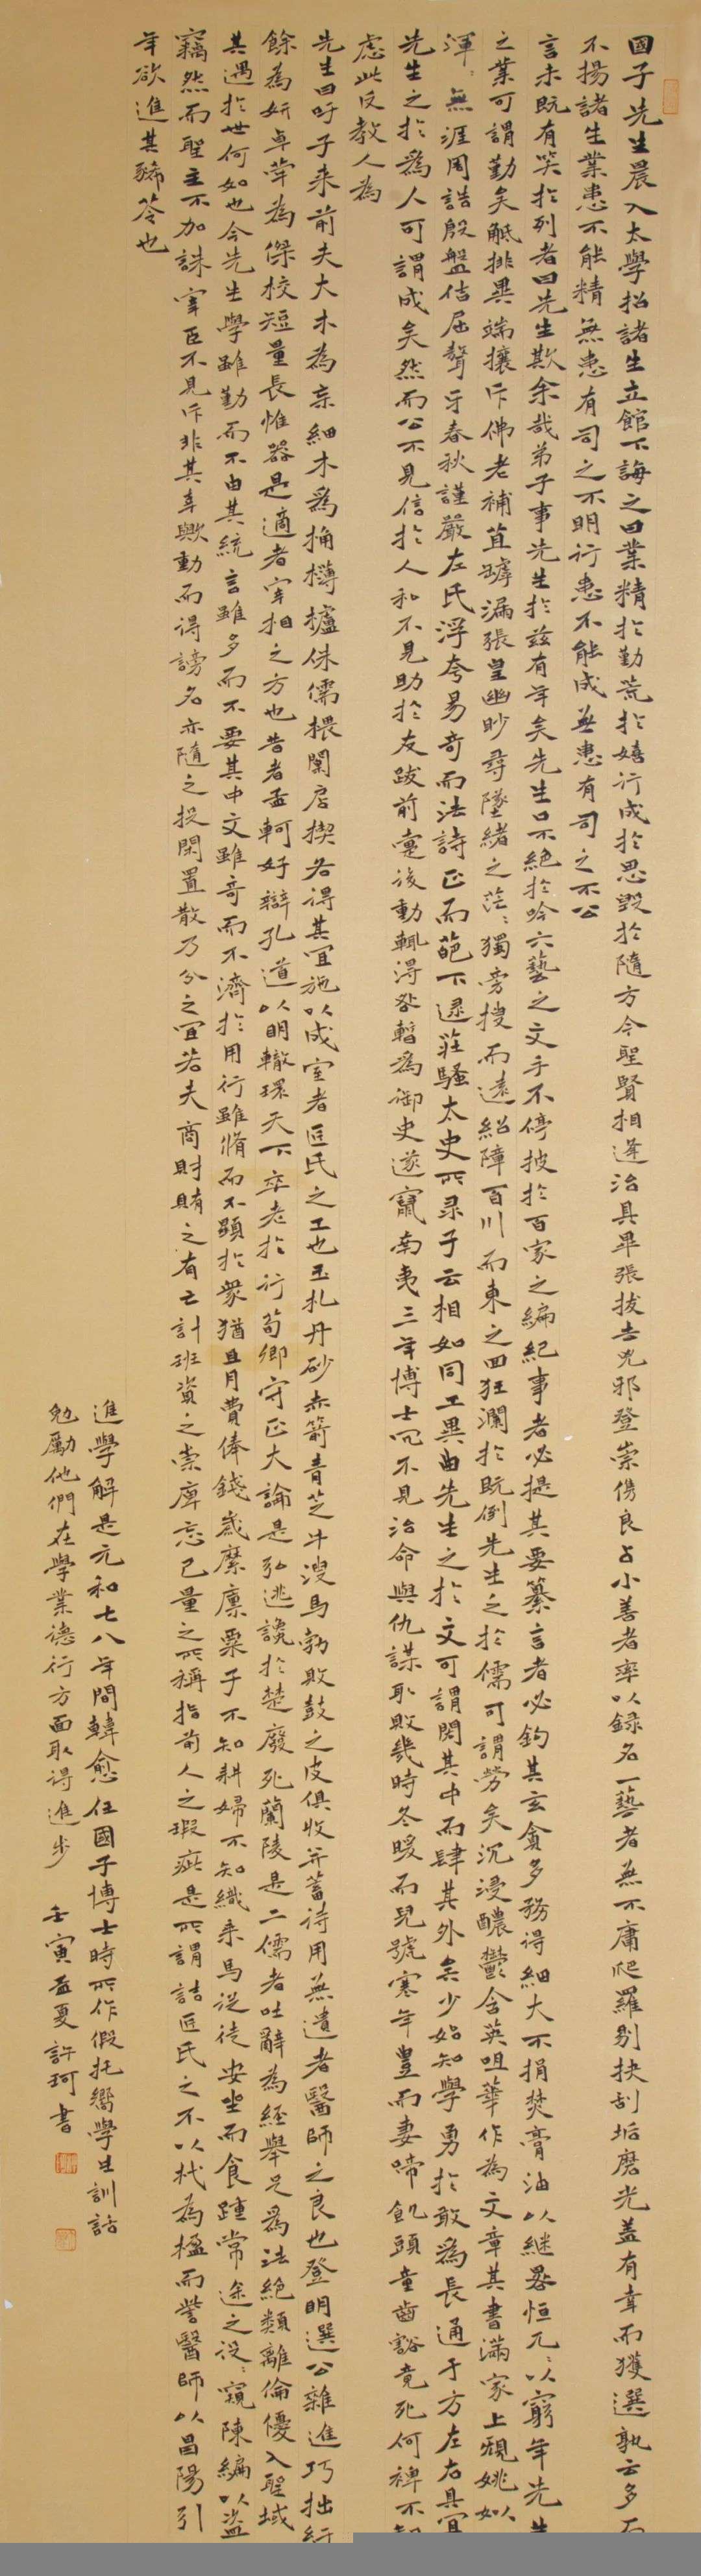 國子先生晨入太學招諸生立館下誨之曰業精於勤荒於嬉行成於思毀於隨方今聖賢相逢治具畢張拔去兇邪登崇儁良占小善者率以録名一藝者無不庸爬羅剔抉刮垢磨光蓋有幸而獲選孰云多而
不揚諸生業患不能精無患有司之不明行患不能成無患有司之不公
言未既有笑於列者曰先生欺余哉弟子事先生於茲有年矣先生口不絕於吟六藝之文手不停披於百家之編紀事者必提其要纂言者必鈎其玄貪多務得細大不捐焚膏油以継晷恒兀〻以窮年先生
之業可謂勤矣觝排異端攘斥佛老補苴罅漏張皇幽眇尋墜緒之茫〻獨旁搜而遠紹障百川而東之回狂瀾於既倒先生之於儒可謂勞矣沉浸醲鬱含英咀華作為文章其書滿家上規姚姒
渾〻無涯周誥殷盤佶屈聱牙春秋謹嚴左氏浮夸易奇而法詩正而葩下逮莊騷太史所录子云相如同工異曲先生之於文可謂閎其中而肆其外矣少始知學勇於敢為長通于方左右具宜
先生之於為人可謂成矣然而公不見信於人私不見助於友跋前疐後動輒得咎暫為御史遂竄南夷三年博士冗不見治命與仇謀取敗幾時冬暖而兒號寒年豊而妻啼飢頭童齒豁竟死何裨不知
慮此反教人為
先生曰吁子来前夫大木為杗細木為桷欂櫨侏儒椳闑扂楔各得其宜施以成室者匠氏之工也玉札丹砂赤箭青芝牛溲馬勃敗鼓之皮俱收并蓄待用無遺者醫師之良也登明選公雜進巧拙紆
餘為妍卓犖為傑校短量長惟器是適者宰相之方也昔者孟軻好辯孔道以明轍環天下卒老於行荀卿守正大論是弘逃讒於楚廢死蘭陵是二儒者吐辭為經舉足為法絕類離倫優入聖域
其遇於世何如也今先生學雖勤而不由其統言雖多而不要其中文雖奇而不濟於用行雖脩而不顯於衆猶且月費俸錢歲縻廩粟子不知耕婦不知織乘馬從徒安坐而食踵常途之役〻窺陳編以盜
竊然而聖主不加誅宰臣不見斥非其幸歟動而得謗名亦隨之投閑置散乃分之宜若夫商財賄之有亡計班資之崇庳忘己量之所稱指前人之瑕疵是所謂詰匠氏之不以杙為楹而訾醫師以昌陽引
年欲進其豨苓也
進學解是元和七八年間韓愈任國子博士時所作假托嚮學生訓話
勉勵他們在學業德行方面取得進步 壬寅孟夏許珂書